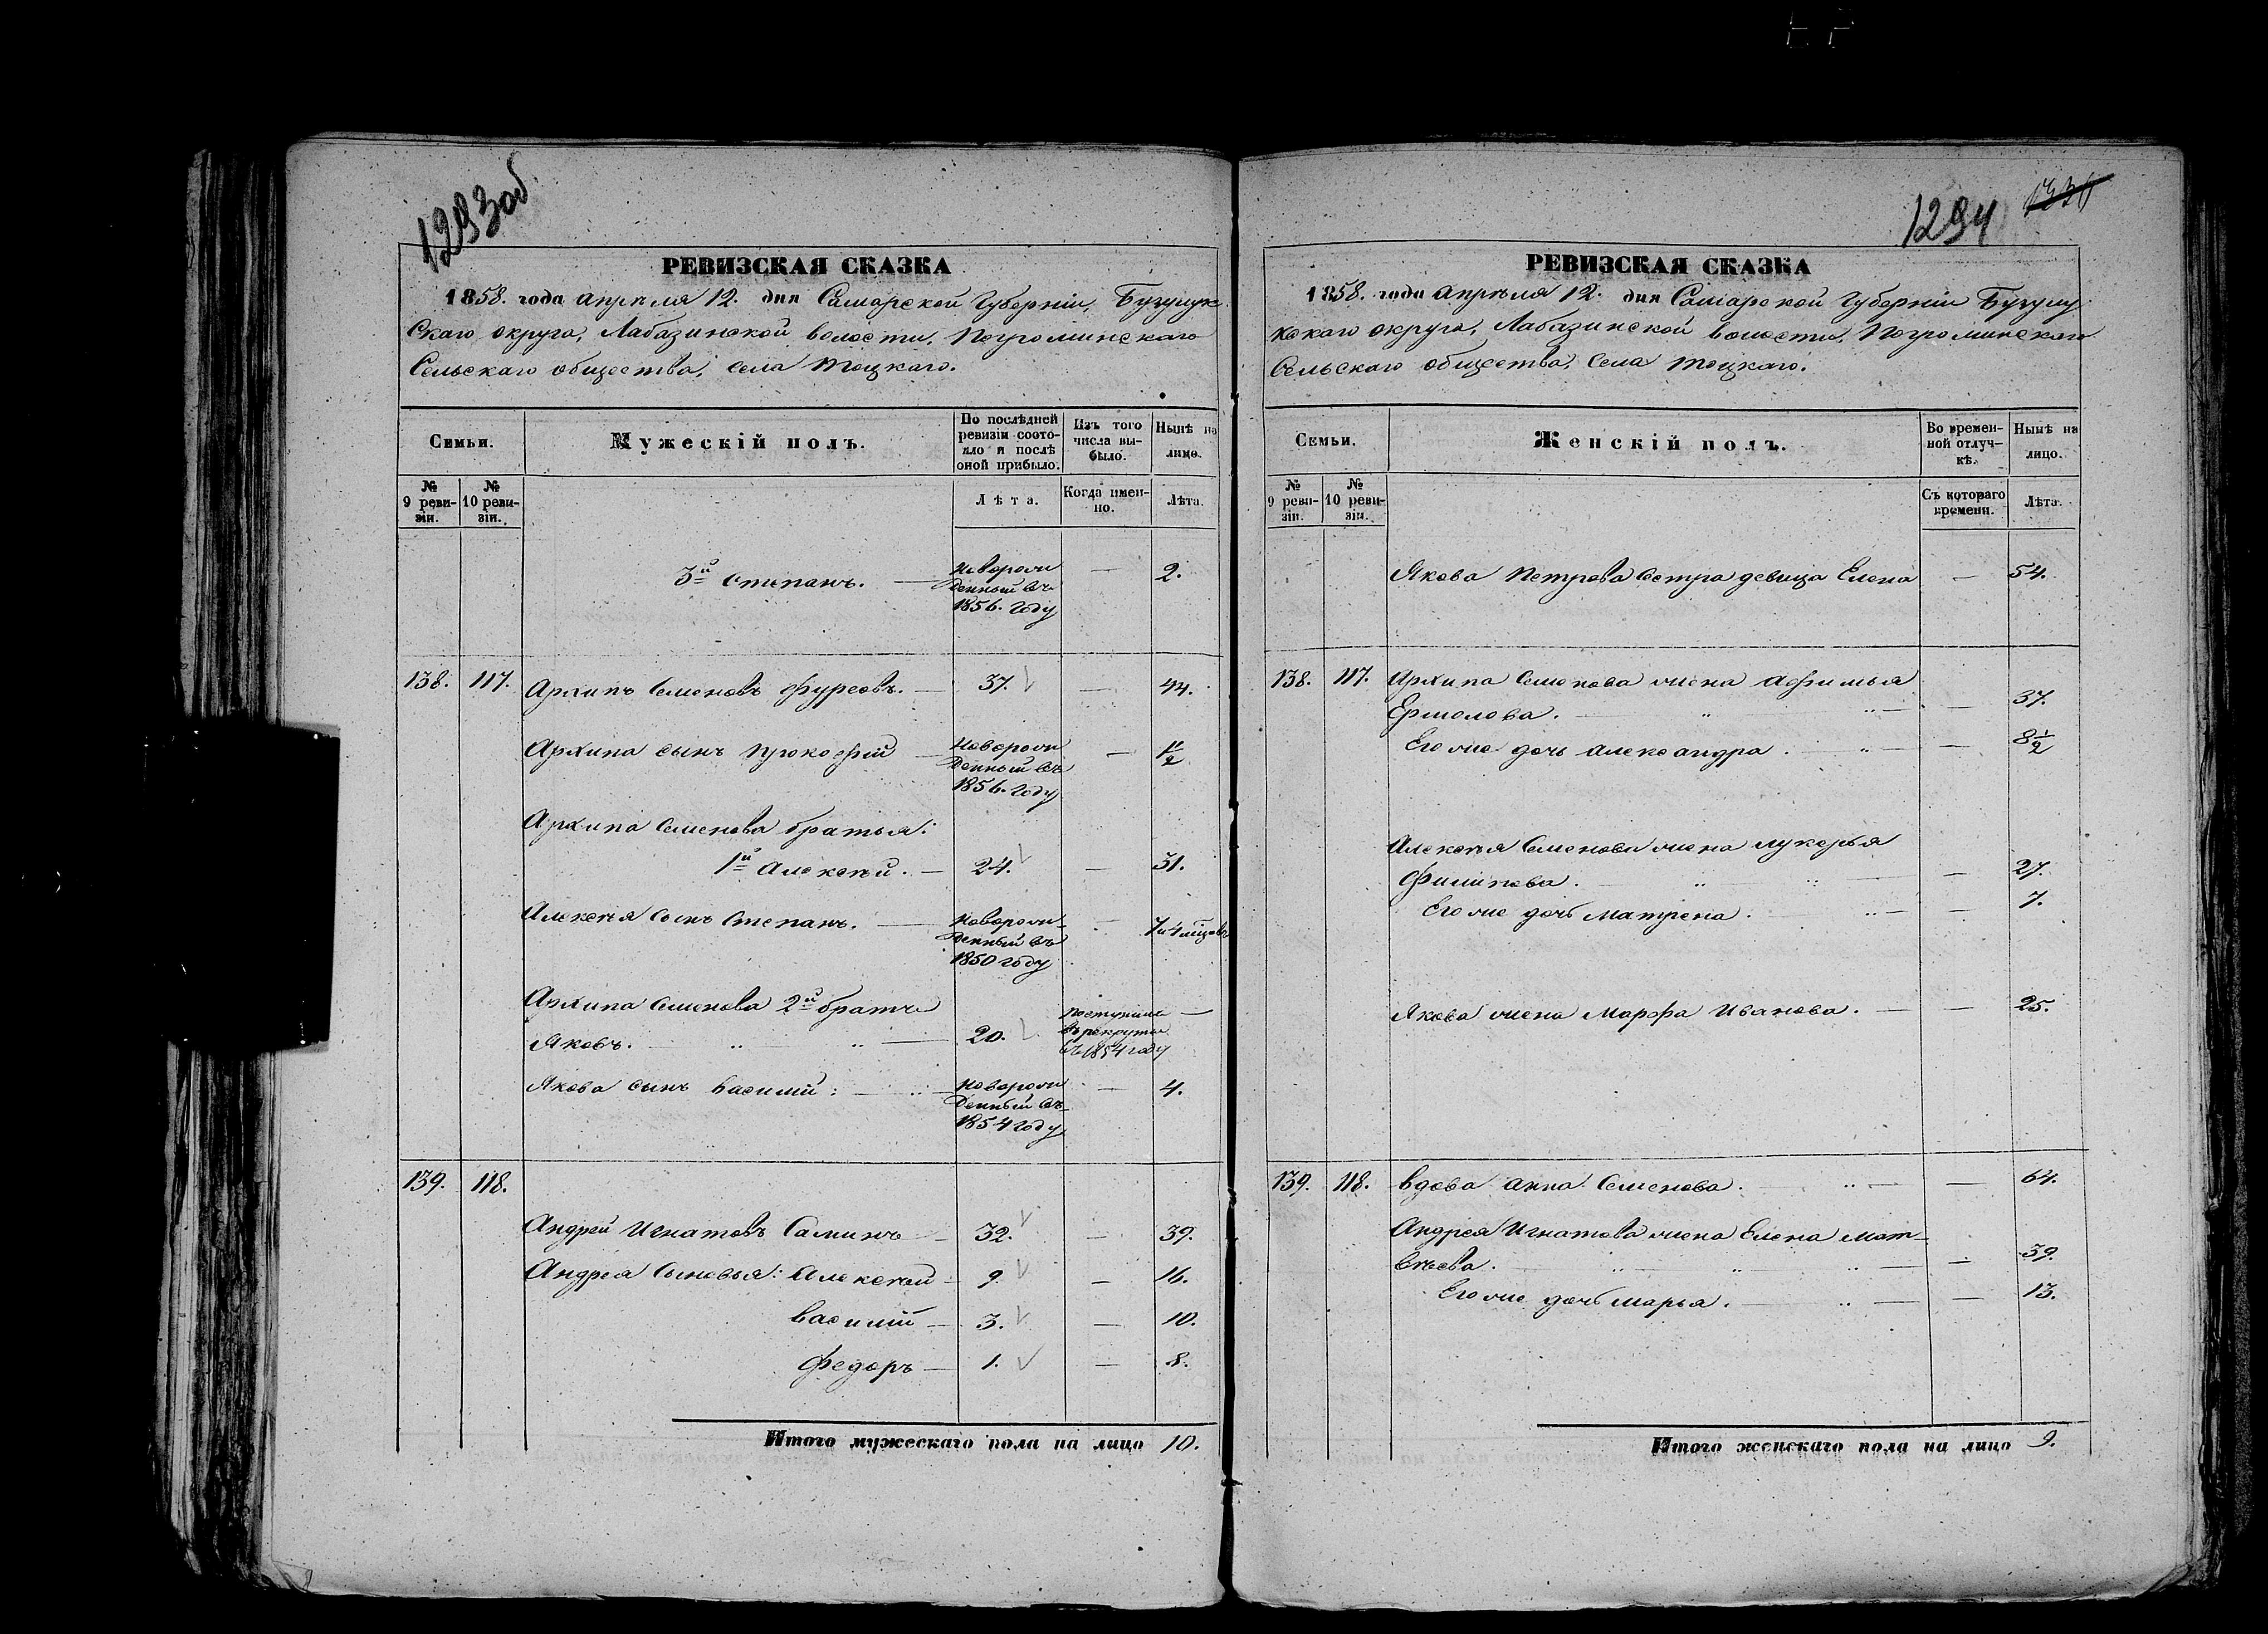 1293об
РЕВИЗСКАЯ СКАЗКА
1858. года апрѣля 12. дня Самарской Губерніи, Бузулук-
скаго округа, Лабазинской волости, Погроминскаго
Сельскаго общества, села Тоцкаго.
Семьи.
Мужескій полъ.
По послѣдней
ревизіи состо-
яло и послѣ
оной прибыло.
Изъ того
числа вы-
было.
Нынѣ на
лицо.
№
9 реви-
зіи.
№
10 реви-
зіи.
Лѣта.
Когда имен-
но.
Лѣта.
3й Степанъ. — новорож
денный въ
1856. году — 2.
138. 117. Архипъ Семеновъ Фурсовъ. — 37. — 44.
Архипа сынъ Прокофій — новорож
денный въ
1856. году — 1 1/2
Архипа Семенова братья:
1й Алексѣй. — 24. — 31.
Алексѣя сынъ Степанъ. — новорож-
денный въ
1850 году — 7 и 4 мѣсяцовъ
Архипа Семенова 2й братъ
Яковъ. 20. поступилъ
въ рекруты
въ 1854 году —
Якова сынъ Василій: — новорож
денный въ
1854 году — 4.
139. 118.
Андрей Игнатовъ Саминъ — 32. — 39.
Андрея сыновья: Алексѣй — 9. — 16.
Василій — 3. — 10.
Федоръ — 1. — 8.
Итого мужескаго пола на лицо 10.
1294
РЕВИЗСКАЯ СКАЗКА
1858. года апрѣля 12. дня Самарской Губерніи Бузулу-
кскаго округа, Лабазинской волости, Погроминскаго
Сельскаго общества, села Тоцкаго.
Семьи.
Женскій полъ.
Во времен-
ной отлуч-
кѣ.
Нынѣ на
лицо.
№
9 реви-
зіи.
№
10 реви-
зіи.
Съ котораго
времени.
Лѣта.
Якова Петрова сестра девица Елена — 54.
138. 117. Архипа Семенова жена Афимья
Ермолова. — 37.
Его же дочь Александра. — 8 1/2
Алексѣя Семенова жена Лукерья
Филипова. — 27.
Его же дочь Матрена. — 7.
Якова жена Марфа Иванова. — 25.
139. 118. Вдова Анна Семенова. — 64.
Андрея Игнатова жена Елена Мат-
вѣева. — 39.
Его же дочь Марья. — 13.
Итого женскаго пола на лицо 9.